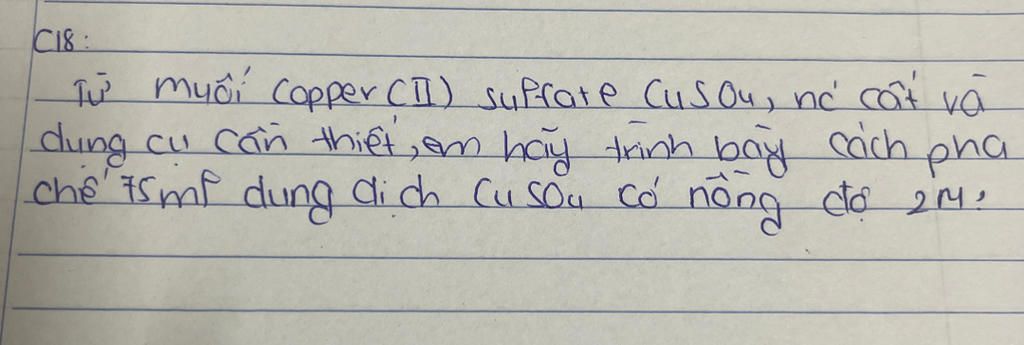 C18:
Từ muối Copper (II) sulfate CuSO4, nc cất và
dụng cụ cần thiết, em hãy trình bày cách pha
chế 75ml dung dịch CuSO4 có nồng độ 2M?